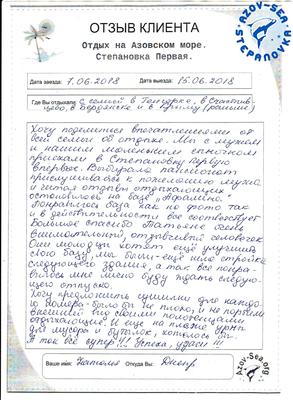 ОТЗЫВ КЛИЕНТА
Отдых на Азовском море.
Степановка Первая.
AZOV-SEA
STEPANOVKA
Дата заезда: 7.06.2018 Дата выезда: 15.06.2018
Где Вы отдыхали с семьей в Геническе, в Счастлив-
цево, в Бердянске и в Крыму (раньше)
Хочу поделиться впечатлениями от
всей семьи об отдыхе. Мы с мужем
и нашим маленьким сыночком
приехали в Степановку первую
впервые. Выбирали пансионат
прислушиваясь к пожеланию мужа
и читая отзывы отдыхающих
остановились на базе
Понравилась база как на фото так
и в действительности все соответствует
Большое спасибо Татьяне очень
внимательный, отзывчивый человек.
Они молодцы хотят ещё улучшить
свою базу, мы были еще шла стройка
следующего здания, а так все понра-
вилось мне лично буду ждать следу-
ющего отпуска.
Хочу предложить сушилки для каждо-
го номера было бы не плохо, и не портили
внешний вид своими полотенцами
отдыхающие. И еще на пляже урны
для мусора и бутылок, хотелось бы.
А так все супер!!! Успеха, удачи!!!
Ваше имя: Наталия Откуда Вы: Днепр
Azov-Sea.org